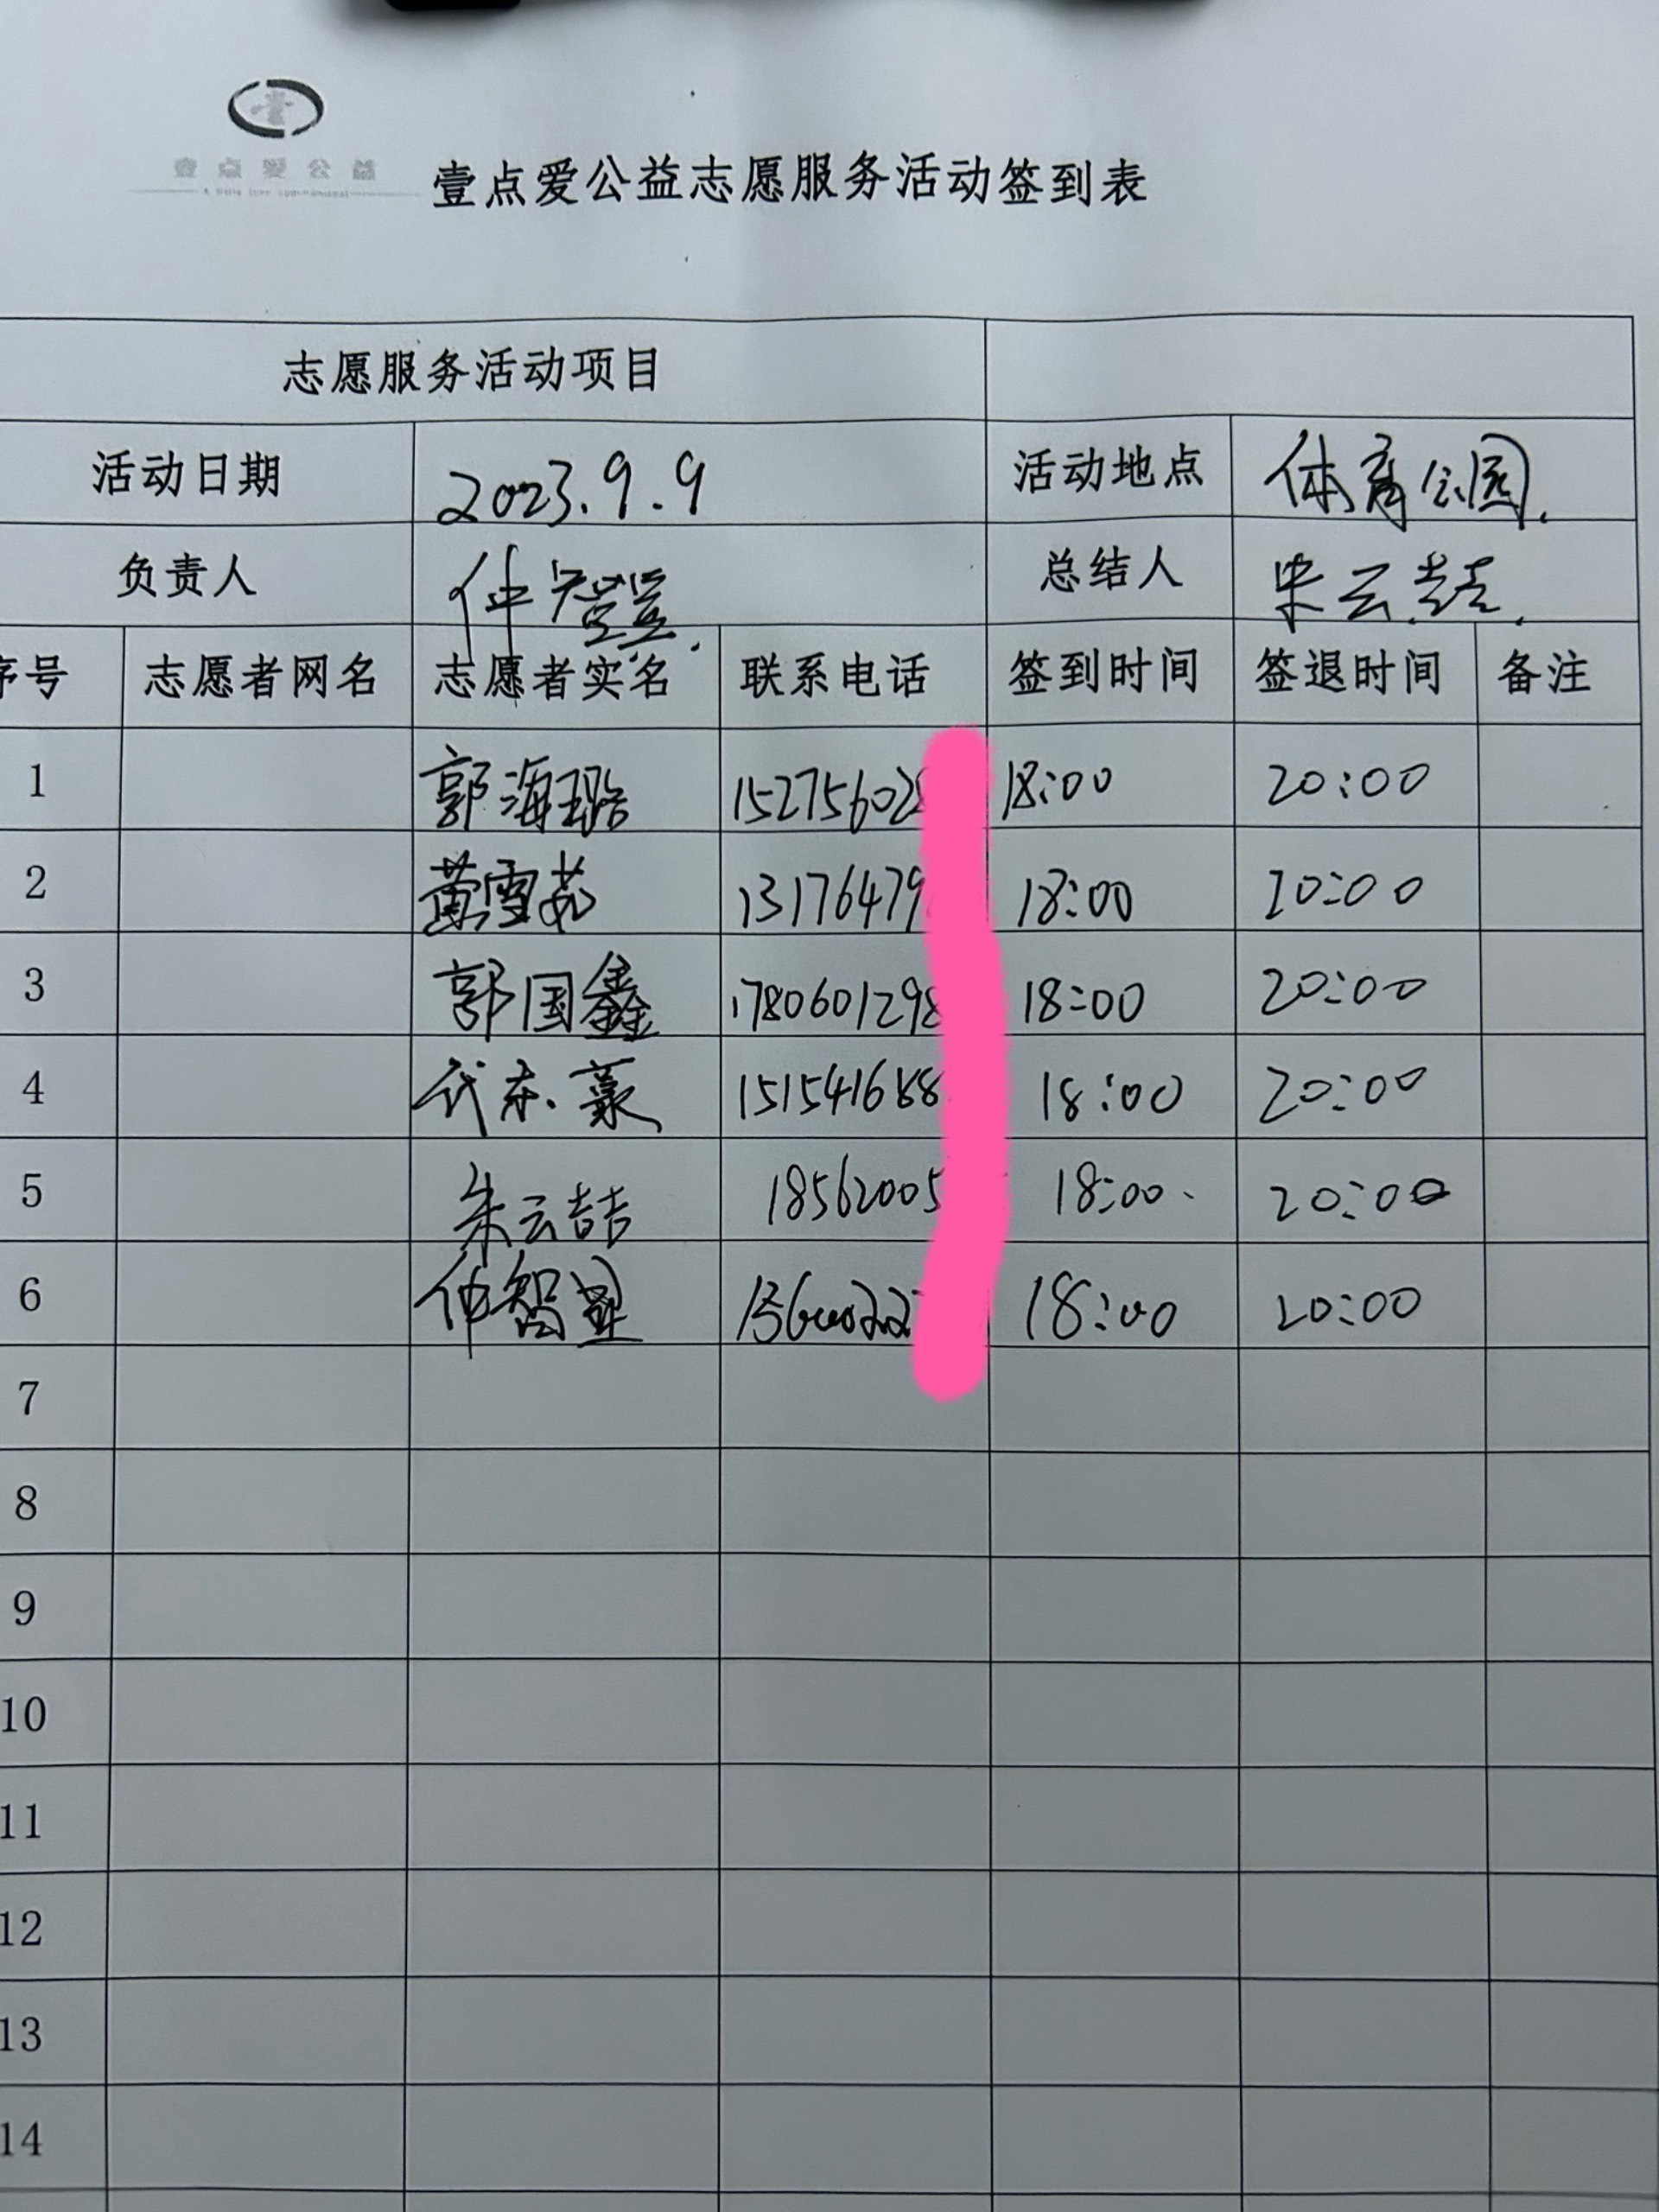 壹点爱公益
壹点爱公益志愿服务活动签到表
志愿服务活动项目
活动日期 2023.9.9 活动地点 体育公园.
负责人 仲 总结人 朱云喆.
序号 志愿者网名 志愿者实名 联系电话 签到时间 签退时间 备注
1 郭海璐 15275602 18:00 20:00
2 董雪茹 13176479 18:00 20:00
3 郭国鑫 1780601298 18:00 20:00
4 代东豪 151541688 18:00 20:00
5 朱云喆 18562005 18:00 20:00
6 仲智 18:00 20:00
7
8
9
10
11
12
13
14